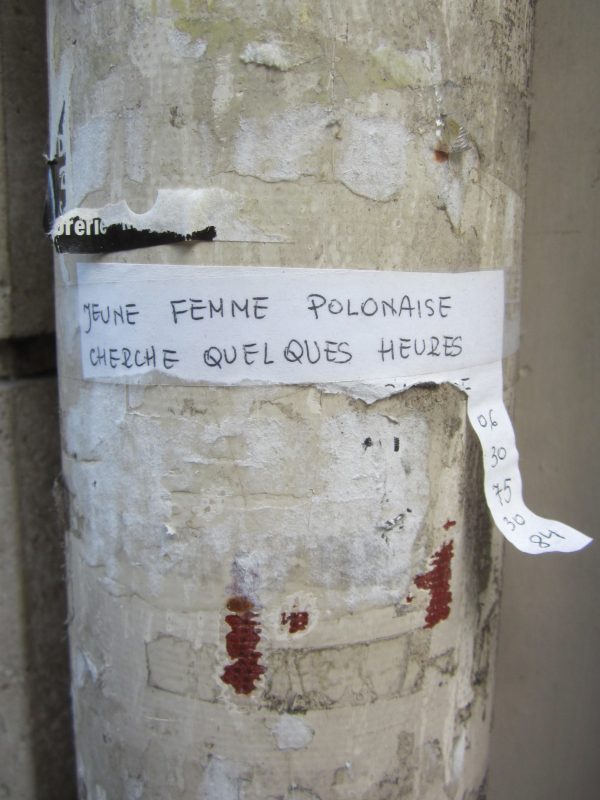 JEUNE FEMME POLONAISE
CHERCHE QUELQUES HEURES
06
30
75
30
84